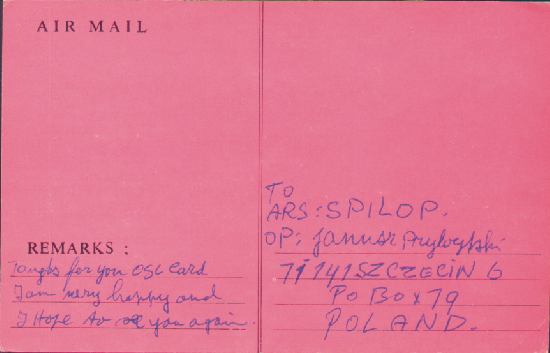 AIR MAIL
REMARKS :
for you QSL Card
I am very happy and
I Hope to see you again.
TO
ARS: SPILOP.
OP: Janusz
71 141 SZCZECIN 6
PO BOX 79
POLAND.